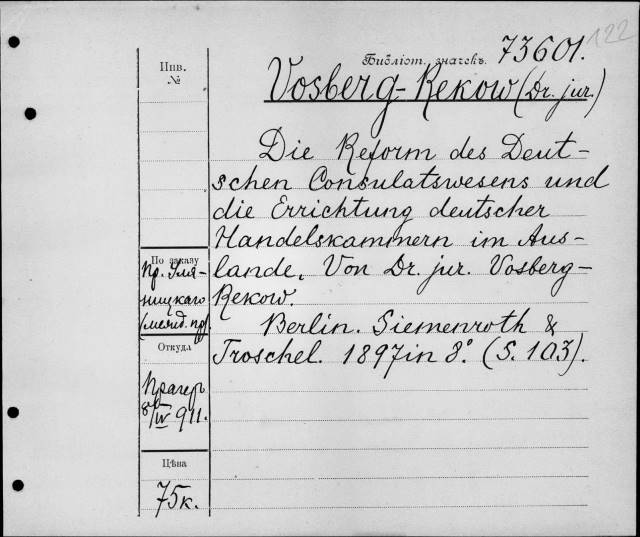 122
Библіот. значекъ. 73601.
Vosberg-Rekow (Dr. jur.)
Die Reform des Deut-
schen Consulatswesens und
die Errichtung deutscher
Handelskammern im Aus-
lande. Von Dr. jur. Vosberg-
Rekow.
Berlin. Siemenroth &
Troschel. 1897 in 8º. (S. 103).
Инв.
№
По заказу
Пр. Уля-
ницкаго
Откуда
Прагеръ
8/IV 911.
Цѣна
75 к.